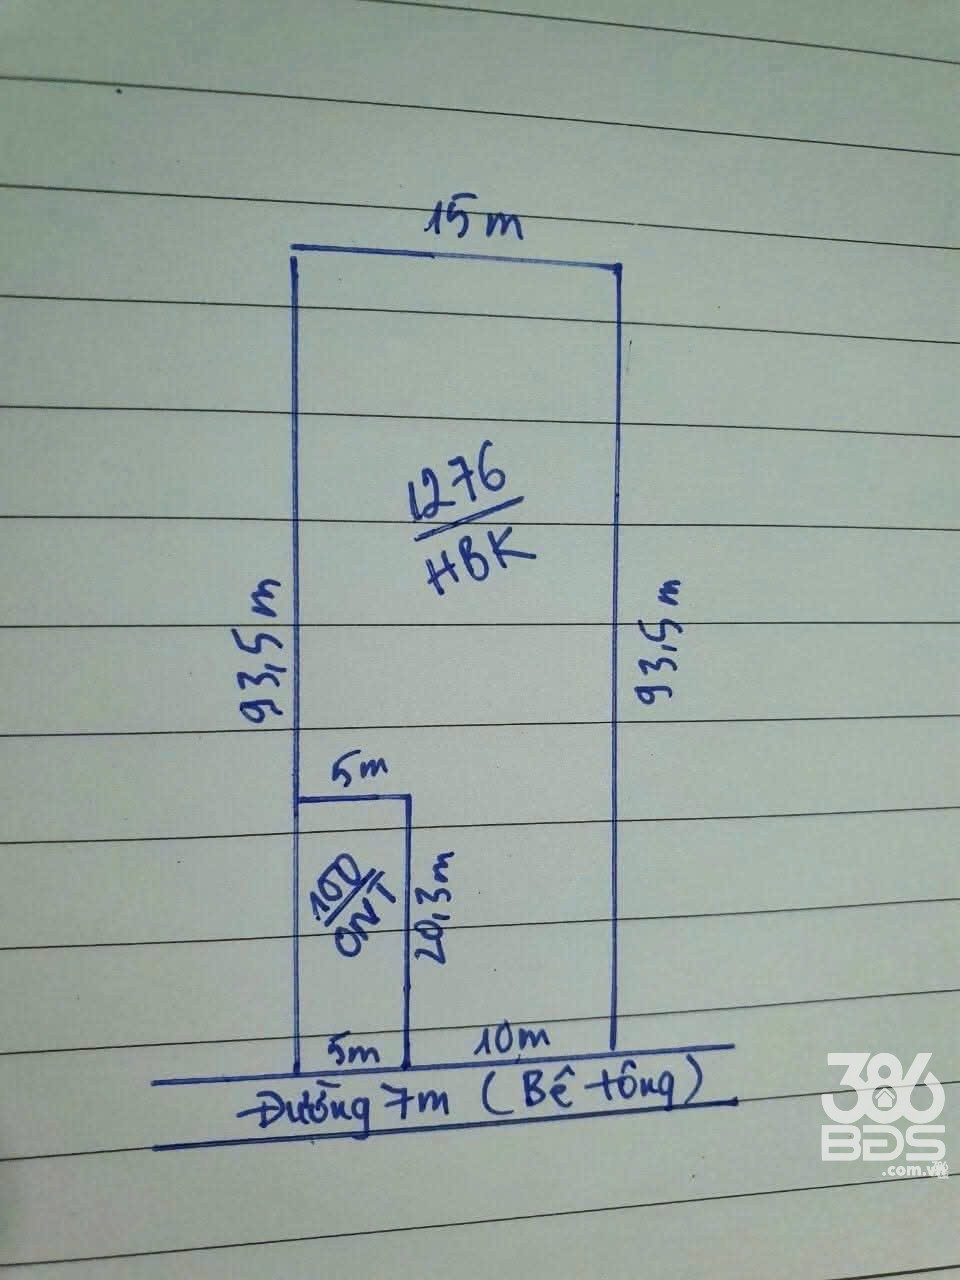 15m
1276
HBK
93,5m
93,5m
5m
100
ONT
20,3m
5m
10m
Đường 7m (Bê tông)
386
BĐS
.com.vn